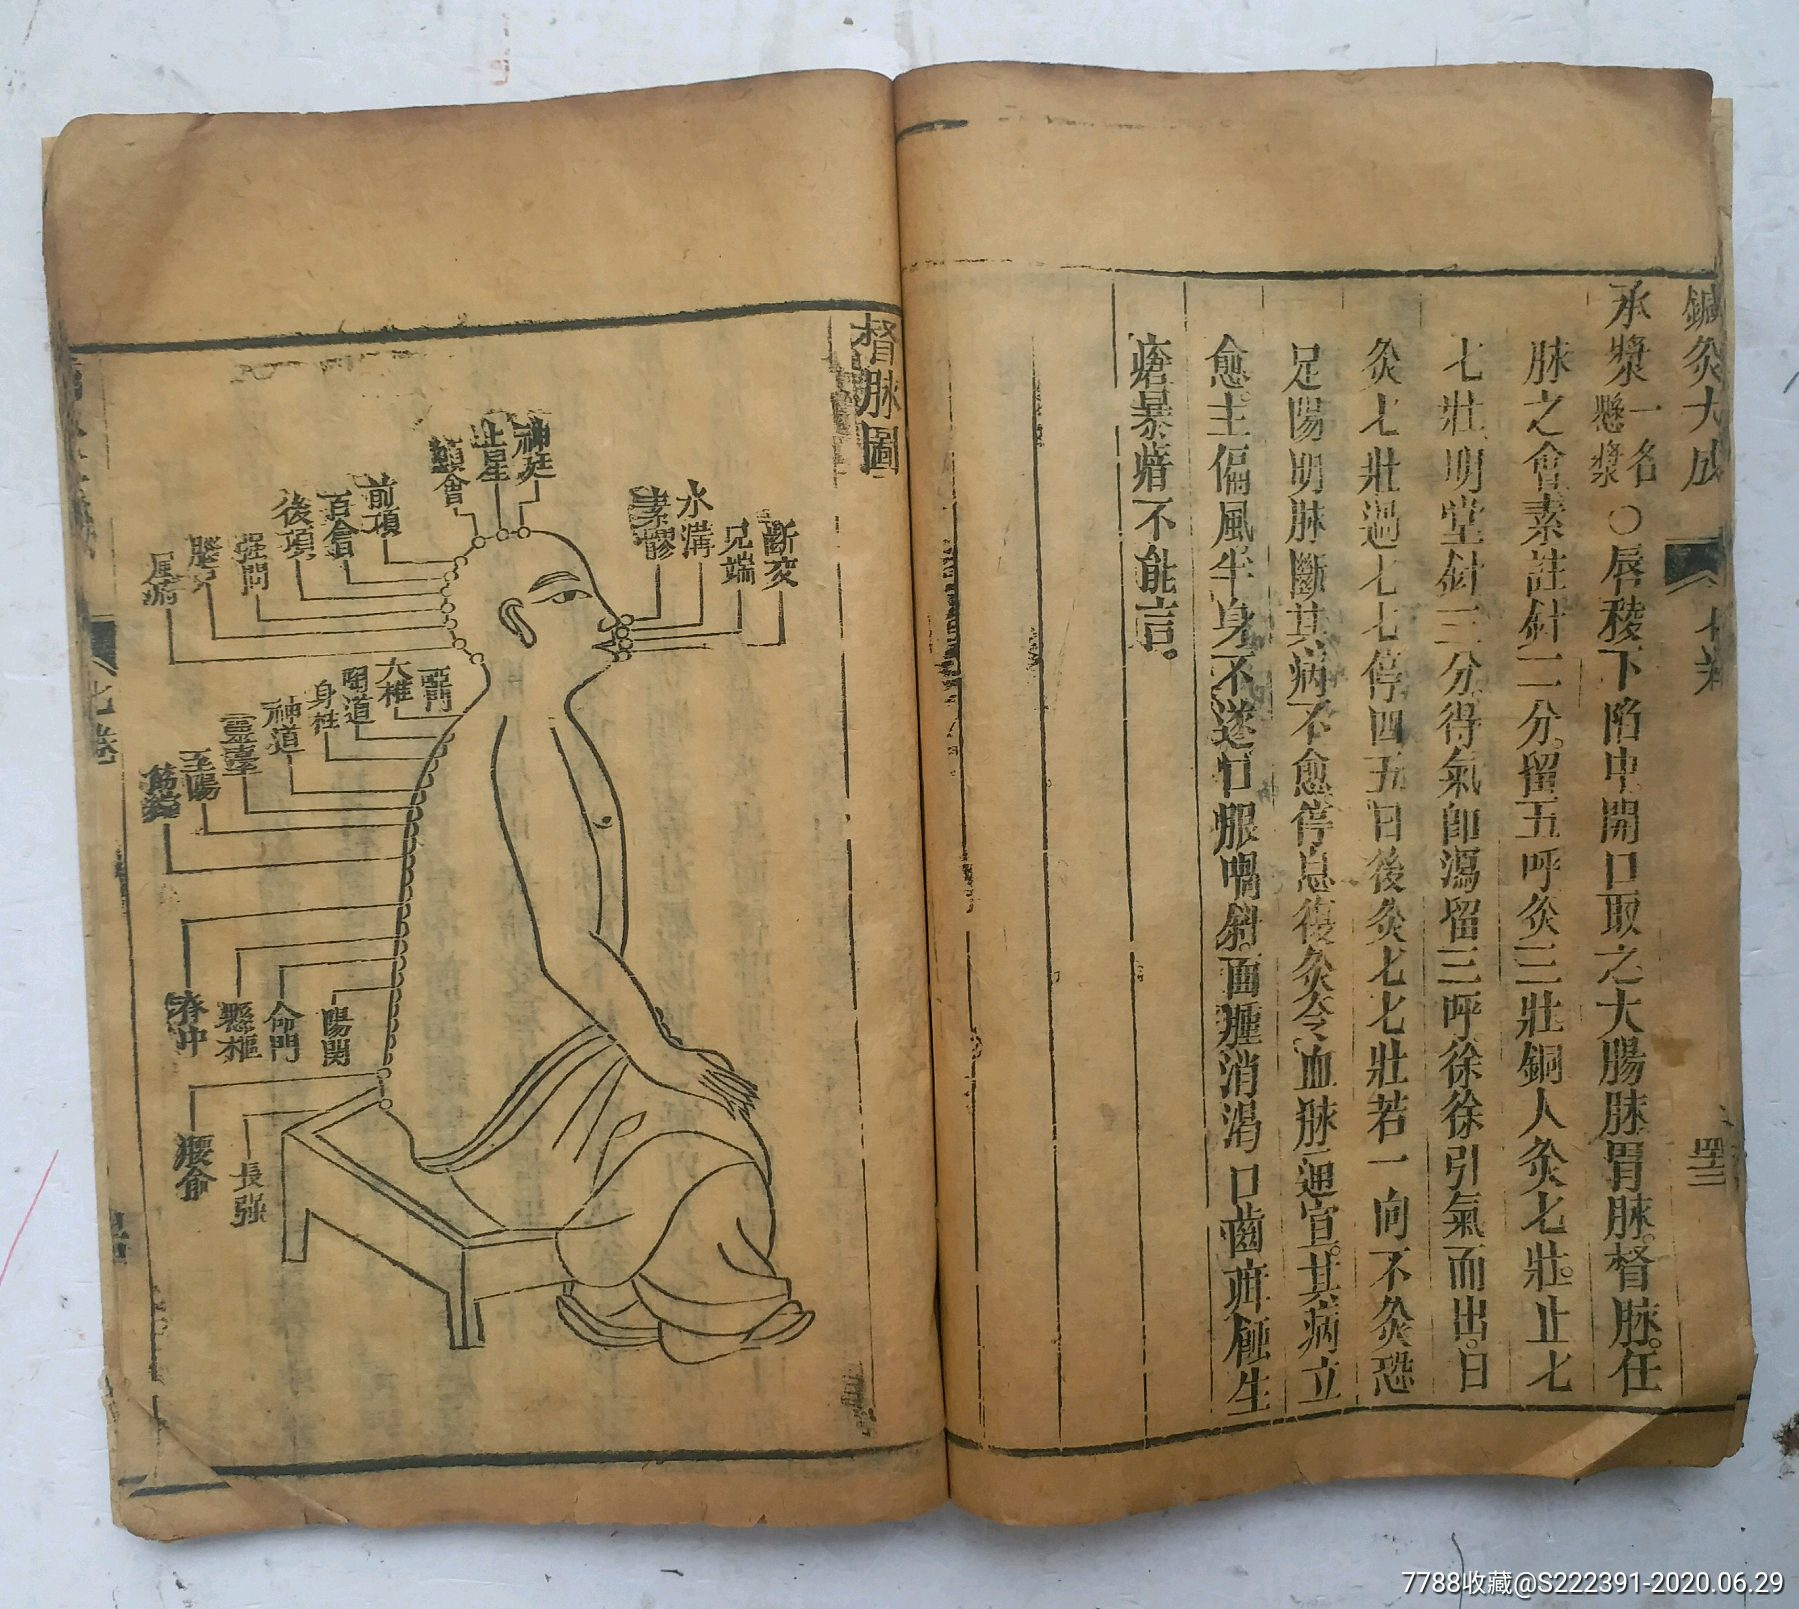 鍼灸大成
七卷
承漿一名懸漿〇唇稜下陷中開口取之大腸脉胃脉。督脉。任
脉之會素註針二分。留五呼灸三壯銅人灸七壯。止七
七壯明堂針三分得氣即瀉留三呼徐徐引氣而出。日
灸七壯過七七停四五日後灸七七壯若一向不灸恐
足陽明脉斷其病不愈停息復灸令血脉通宣。其病立
愈。主偏風半身不遂口眼喎斜。面腫消渴口齒疳蝕生
瘡暴瘖不能言。
督脉圖
斷交
兌端
水溝
素髎
神庭
上星
顖會
前項
百會
後項
强間
腦戶
瘂門
大椎
陶道
身柱
神道
靈臺
至陽
筋縮
陽関
命門
懸樞
脊中
長强
腰俞
七卷
7788收藏@S222391-2020.06.29